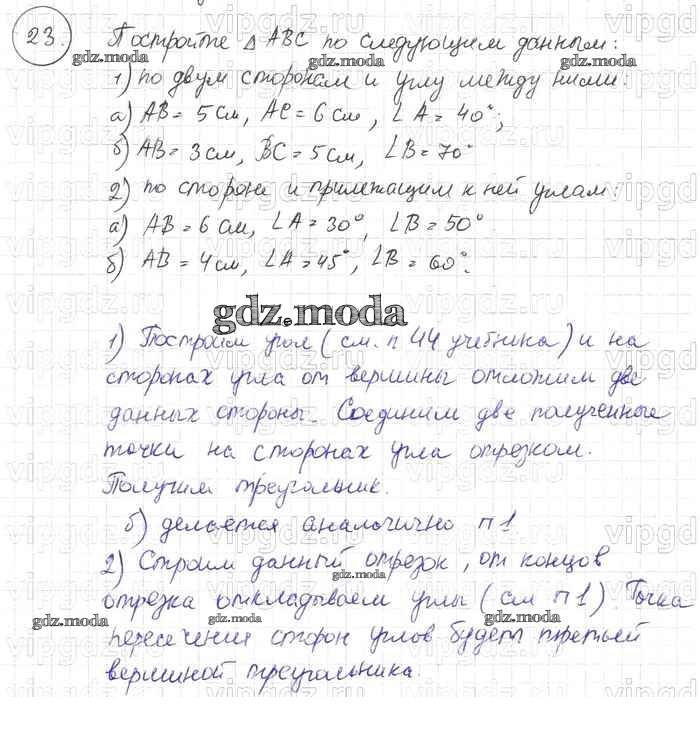 23.
Постройте △ ABC по следующим данным:
1) по двум сторонам и углу между ними:
а) AB = 5 см, AC = 6 см, ∠A = 40°;
б) AB = 3 см, BC = 5 см, ∠B = 70°
2) по стороне и прилежащим к ней углам:
а) AB = 6 см, ∠A = 30°, ∠B = 50°
б) AB = 4 см, ∠A = 45°, ∠B = 60°.
gdz.moda
1) Построим угол (см. п 44 учебника) и на
сторонах угла от вершины отложим две
данных стороны. Соединим две полученные
точки на сторонах угла отрезком.
Получим треугольник.
б) делается аналогично п 1
2) Строим данный отрезок, от концов
gdz.moda
отрезка откладываем углы (см п 1). Точка
пересечения сторон углов будет третьей
вершиной треугольника.
gdz.moda
gdz.moda
gdz.moda
gdz.moda
gdz.moda
vipgdz.ru